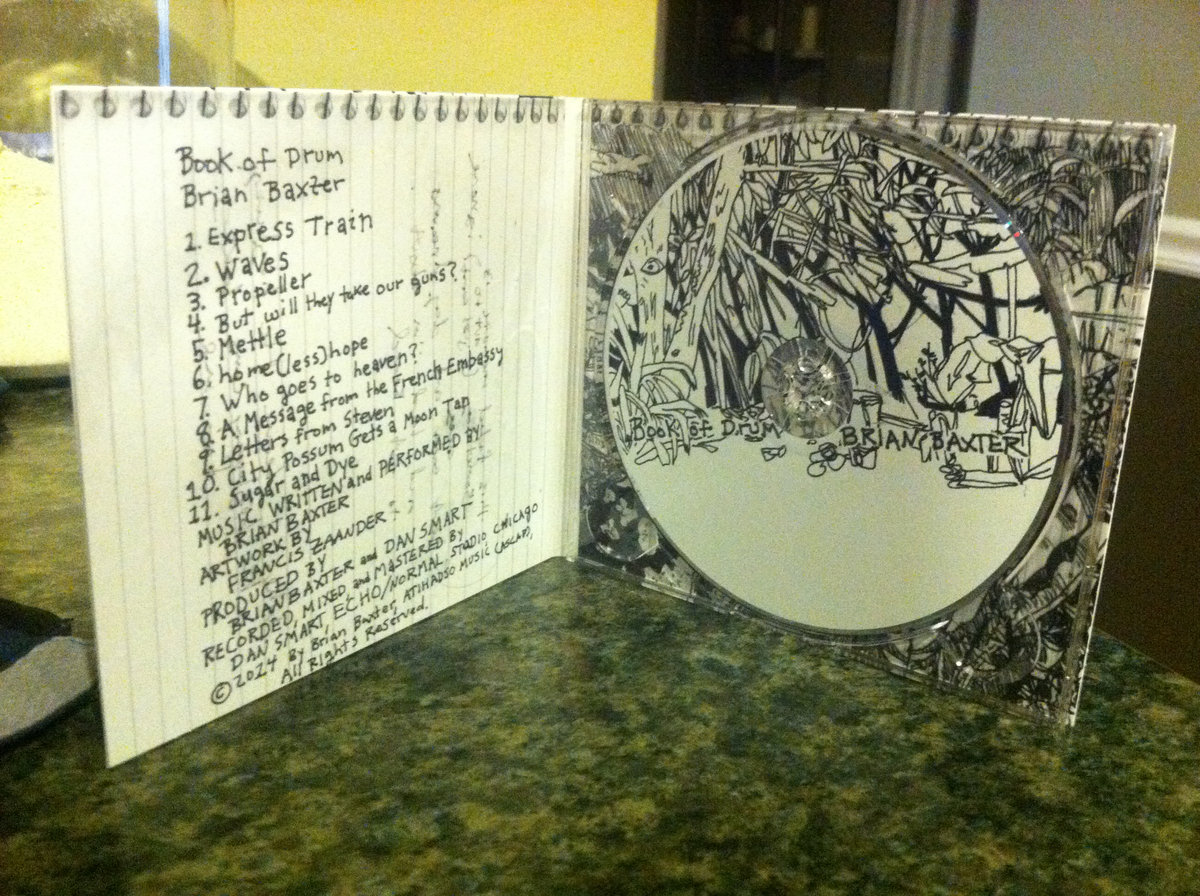 Book of Drum
Brian Baxter
1. Express Train
2. Waves
3. Propeller
4. But will they take our guns?
5. Mettle
6. home(less)hope
7. Who goes to heaven?
8. A Message from the French Embassy
9. Letters from Steven
10. City Possum Gets a Moon Tan
11. Sugar and Dye
MUSIC WRITTEN and PERFORMED BY
BRIAN BAXTER
ARTWORK BY
FRANCIS ZAANDER
PRODUCED BY
BRIAN BAXTER and DAN SMART
RECORDED, MIXED and MASTERED BY
DAN SMART, ECHO/NORMAL STUDIO, CHICAGO
© 2024 By Brian Baxter, ATIHADSO MUSIC (ASCAP),
All Rights Reserved.
BOOK OF DRUM BRIAN BAXTER